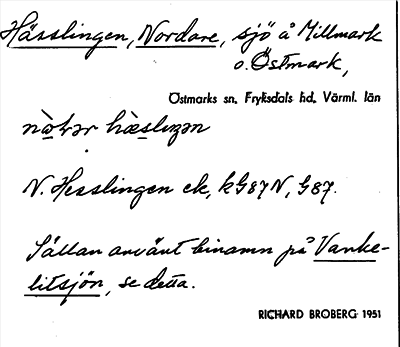 Hässlingen, Nordare, sjö å Millmark
o. Östmark,
Östmarks sn, Fryksdals hd, Värml. län
N. Hesslingen ek, kG87N, G87.
Sällan använt binamn på Vanke-
litsjön, se detta.
RICHARD BROBERG 1951